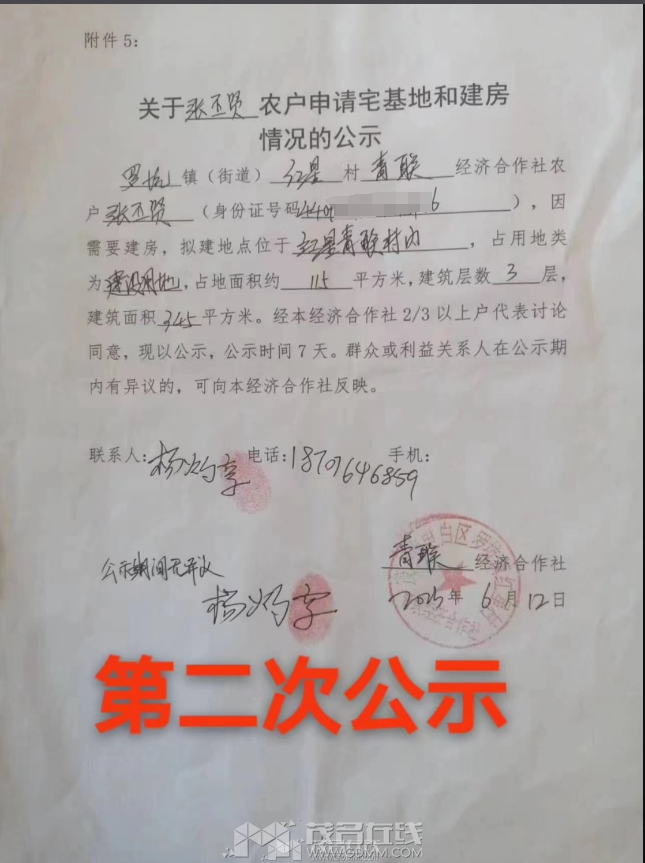 附件5：
关于张丕贤农户申请宅基地和建房
情况的公示
罗坑镇（街道）红星村青联经济合作社农
户张丕贤（身份证号码440 6），因
需要建房，拟建地点位于红星青联村内，占用地类
为建设用地，占地面积约115平方米，建筑层数3层，
建筑面积345平方米。经本经济合作社2/3以上户代表讨论
同意，现以公示，公示时间7天。群众或利益关系人在公示期
内有异议的，可向本经济合作社反映。
联系人：杨灼享 电话：18707646859 手机：
公示期间无异议
青联经济合作社
2025年6月12日
第二次公示
茂名在线
WWW.GDMM.COM